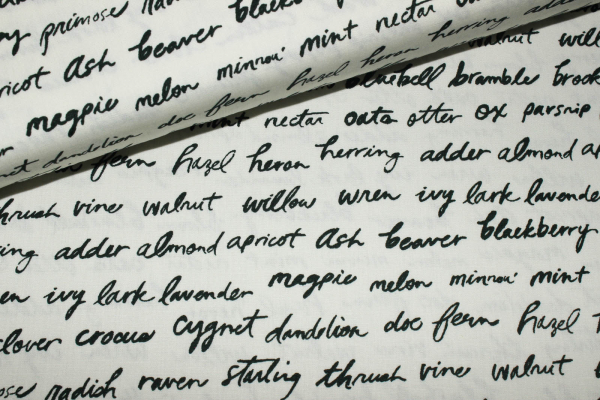 primrose
apricot ash beaver
magpie melon minnow mint nectar
dandelion doe fern hazel heron herring
walnut
bluebell bramble
mint nectar oats otter ox parsnip
fern hazel heron herring adder almond
thrush vine walnut willow wren ivy lark lavender
adder almond apricot ash beaver blackberry
ivy lark lavender magpie melon minnow mint
clover crocus cygnet dandelion doe fern hazel
radish raven starling thrush vine walnut